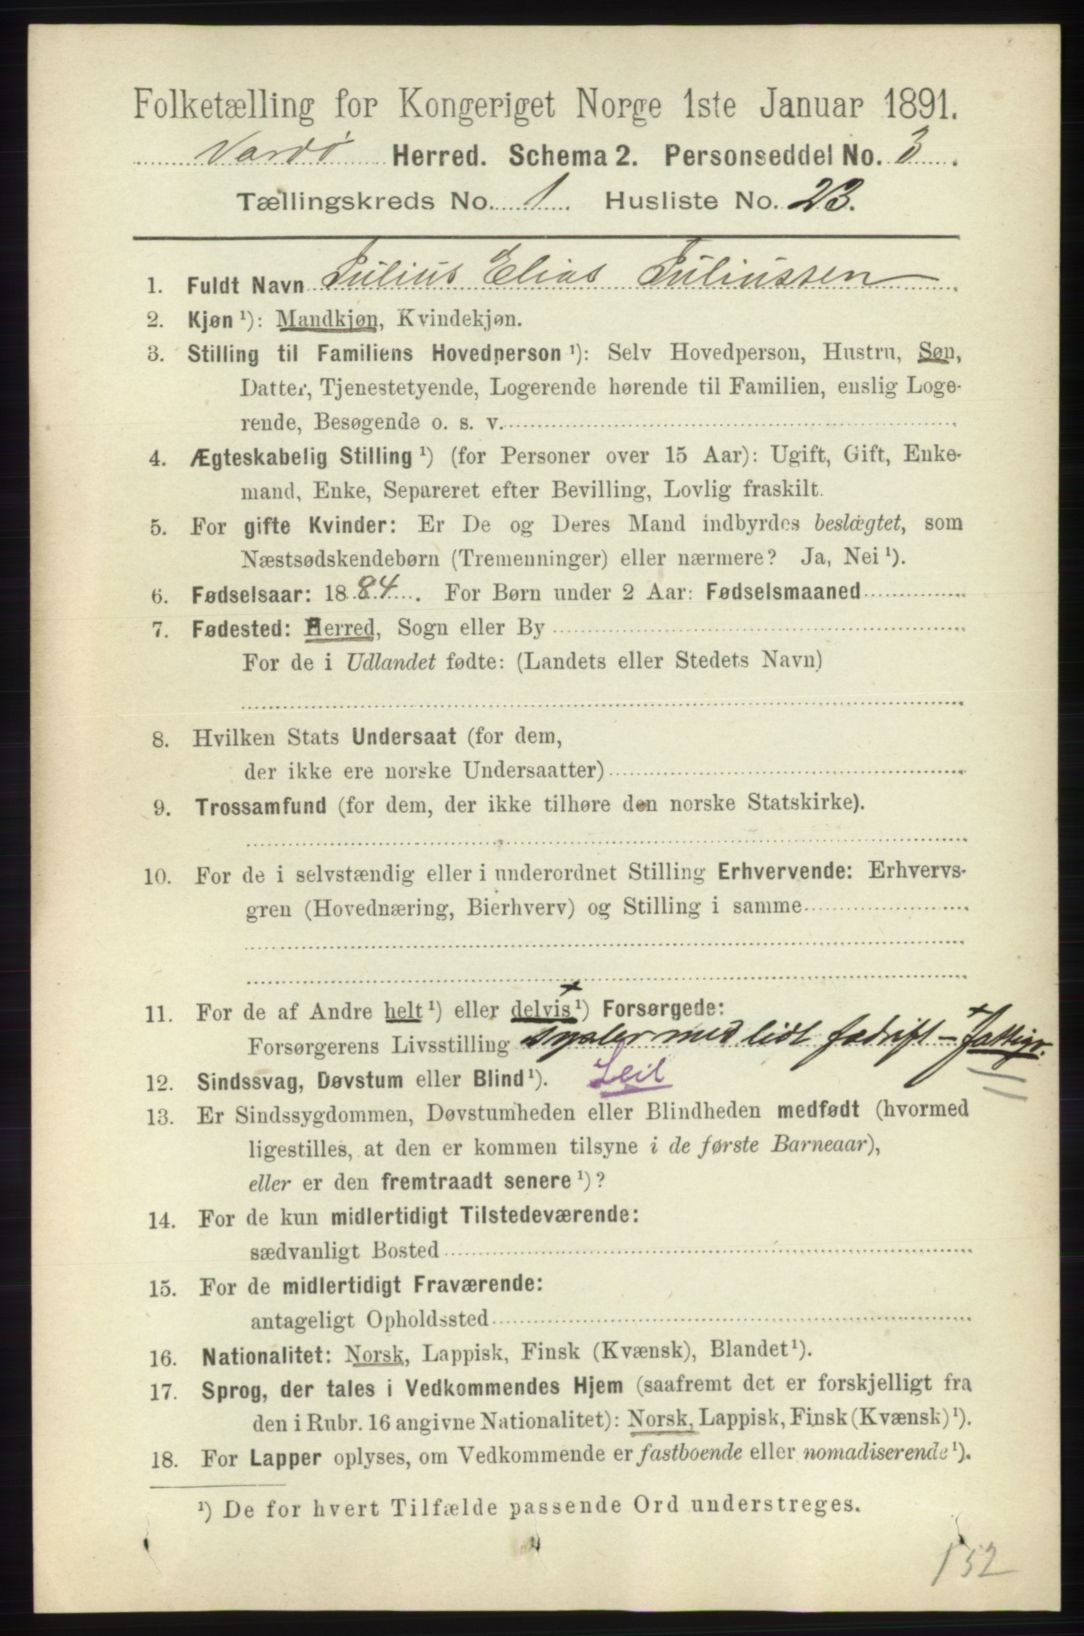 Folketælling for Kongeriget Norge 1ste Januar 1891.
Vardø Herred. Schema 2. Personseddel No. 3.
Tællingskreds No. 1. Husliste No. 23.
1. Fuldt Navn Julius Elias Juliussen
2. Kjøn ¹): Mandkjøn, Kvindekjøn.
3. Stilling til Familiens Hovedperson ¹): Selv Hovedperson, Hustru, Søn,
Datter, Tjenestetyende, Logerende hørende til Familien, enslig Loge-
rende, Besøgende o. s. v.
4. Ægteskabelig Stilling ¹) (for Personer over 15 Aar): Ugift, Gift, Enke-
mand, Enke, Separeret efter Bevilling, Lovlig fraskilt.
5. For gifte Kvinder: Er De og Deres Mand indbyrdes beslægtet, som
Næstsødskendebørn (Tremenninger) eller nærmere? Ja, Nei ¹).
6. Fødselsaar: 1884. For Børn under 2 Aar: Fødselsmaaned
7. Fødested: Herred, Sogn eller By
For de i Udlandet fødte: (Landets eller Stedets Navn)
8. Hvilken Stats Undersaat (for dem,
der ikke ere norske Undersaatter)
9. Trossamfund (for dem, der ikke tilhøre den norske Statskirke).
10. For de i selvstændig eller i underordnet Stilling Erhvervende: Erhvervs-
gren (Hovednæring, Bierhverv) og Stilling i samme
11. For de af Andre helt ¹) eller delvis ¹) Forsørgede:
Forsørgerens Livsstilling med lidt fædrift – Fattigv.
12. Sindssvag, Døvstum eller Blind ¹).
13. Er Sindssygdommen, Døvstumheden eller Blindheden medfødt (hvormed
ligestilles, at den er kommen tilsyne i de første Barneaar),
eller er den fremtraadt senere ¹)?
14. For de kun midlertidigt Tilstedeværende:
sædvanligt Bosted
15. For de midlertidigt Fraværende:
antageligt Opholdssted
16. Nationalitet: Norsk, Lappisk, Finsk (Kvænsk), Blandet ¹).
17. Sprog, der tales i Vedkommendes Hjem (saafremt det er forskjelligt fra
den i Rubr. 16 angivne Nationalitet): Norsk, Lappisk, Finsk (Kvænsk) ¹).
18. For Lapper oplyses, om Vedkommende er fastboende eller nomadiserende ¹).
¹) De for hvert Tilfælde passende Ord understreges.
152